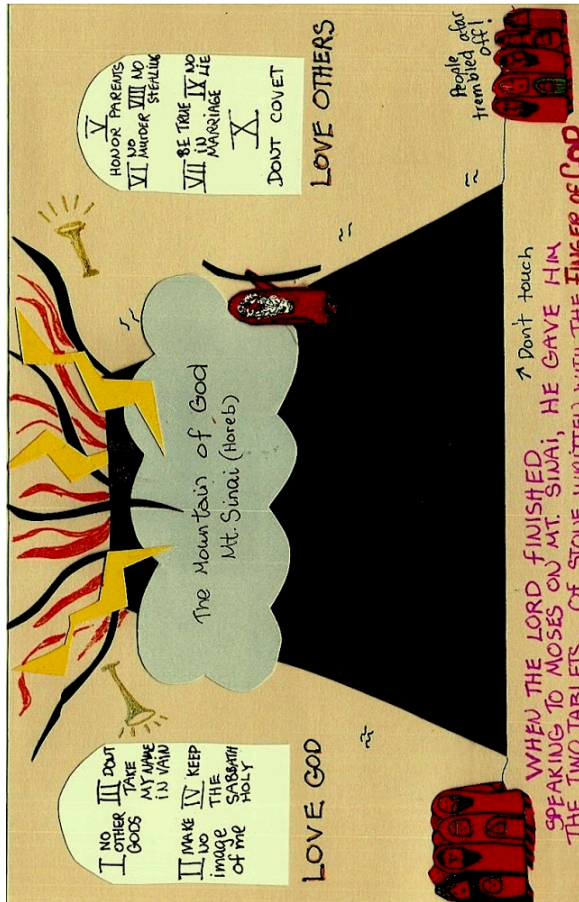 I NO
OTHER
GODS
II MAKE
NO
image
of me
III DONT
TAKE
MY NAME
IN VAIN
IV KEEP
THE
SABBATH
HOLY
LOVE GOD
The Mountain of God
Mt. Sinai (Horeb)
V
HONOR PARENTS
VI NO
MURDER
VIII NO
STEALING
VII BE TRUE
IN
MARRIAGE
IX NO
LIE
X
DONT COVET
LOVE OTHERS
People afar
trembled off!
Don't touch
WHEN THE LORD FINISHED
SPEAKING TO MOSES ON MT. SINAI, HE GAVE HIM
THE TWO TABLETS OF STONE WRITTEN WITH THE FINGER OF GOD